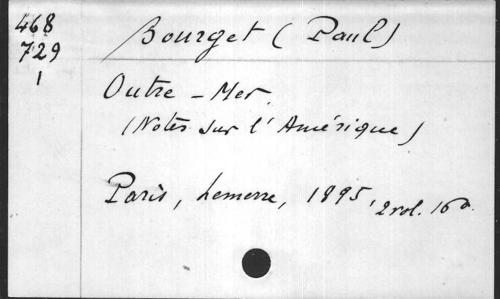 468
729
1
Bourget (Paul)
Outre-Mer.
(Notes sur l'Amérique)
Paris, Lemerre, 1895, 2 vol. 16º.